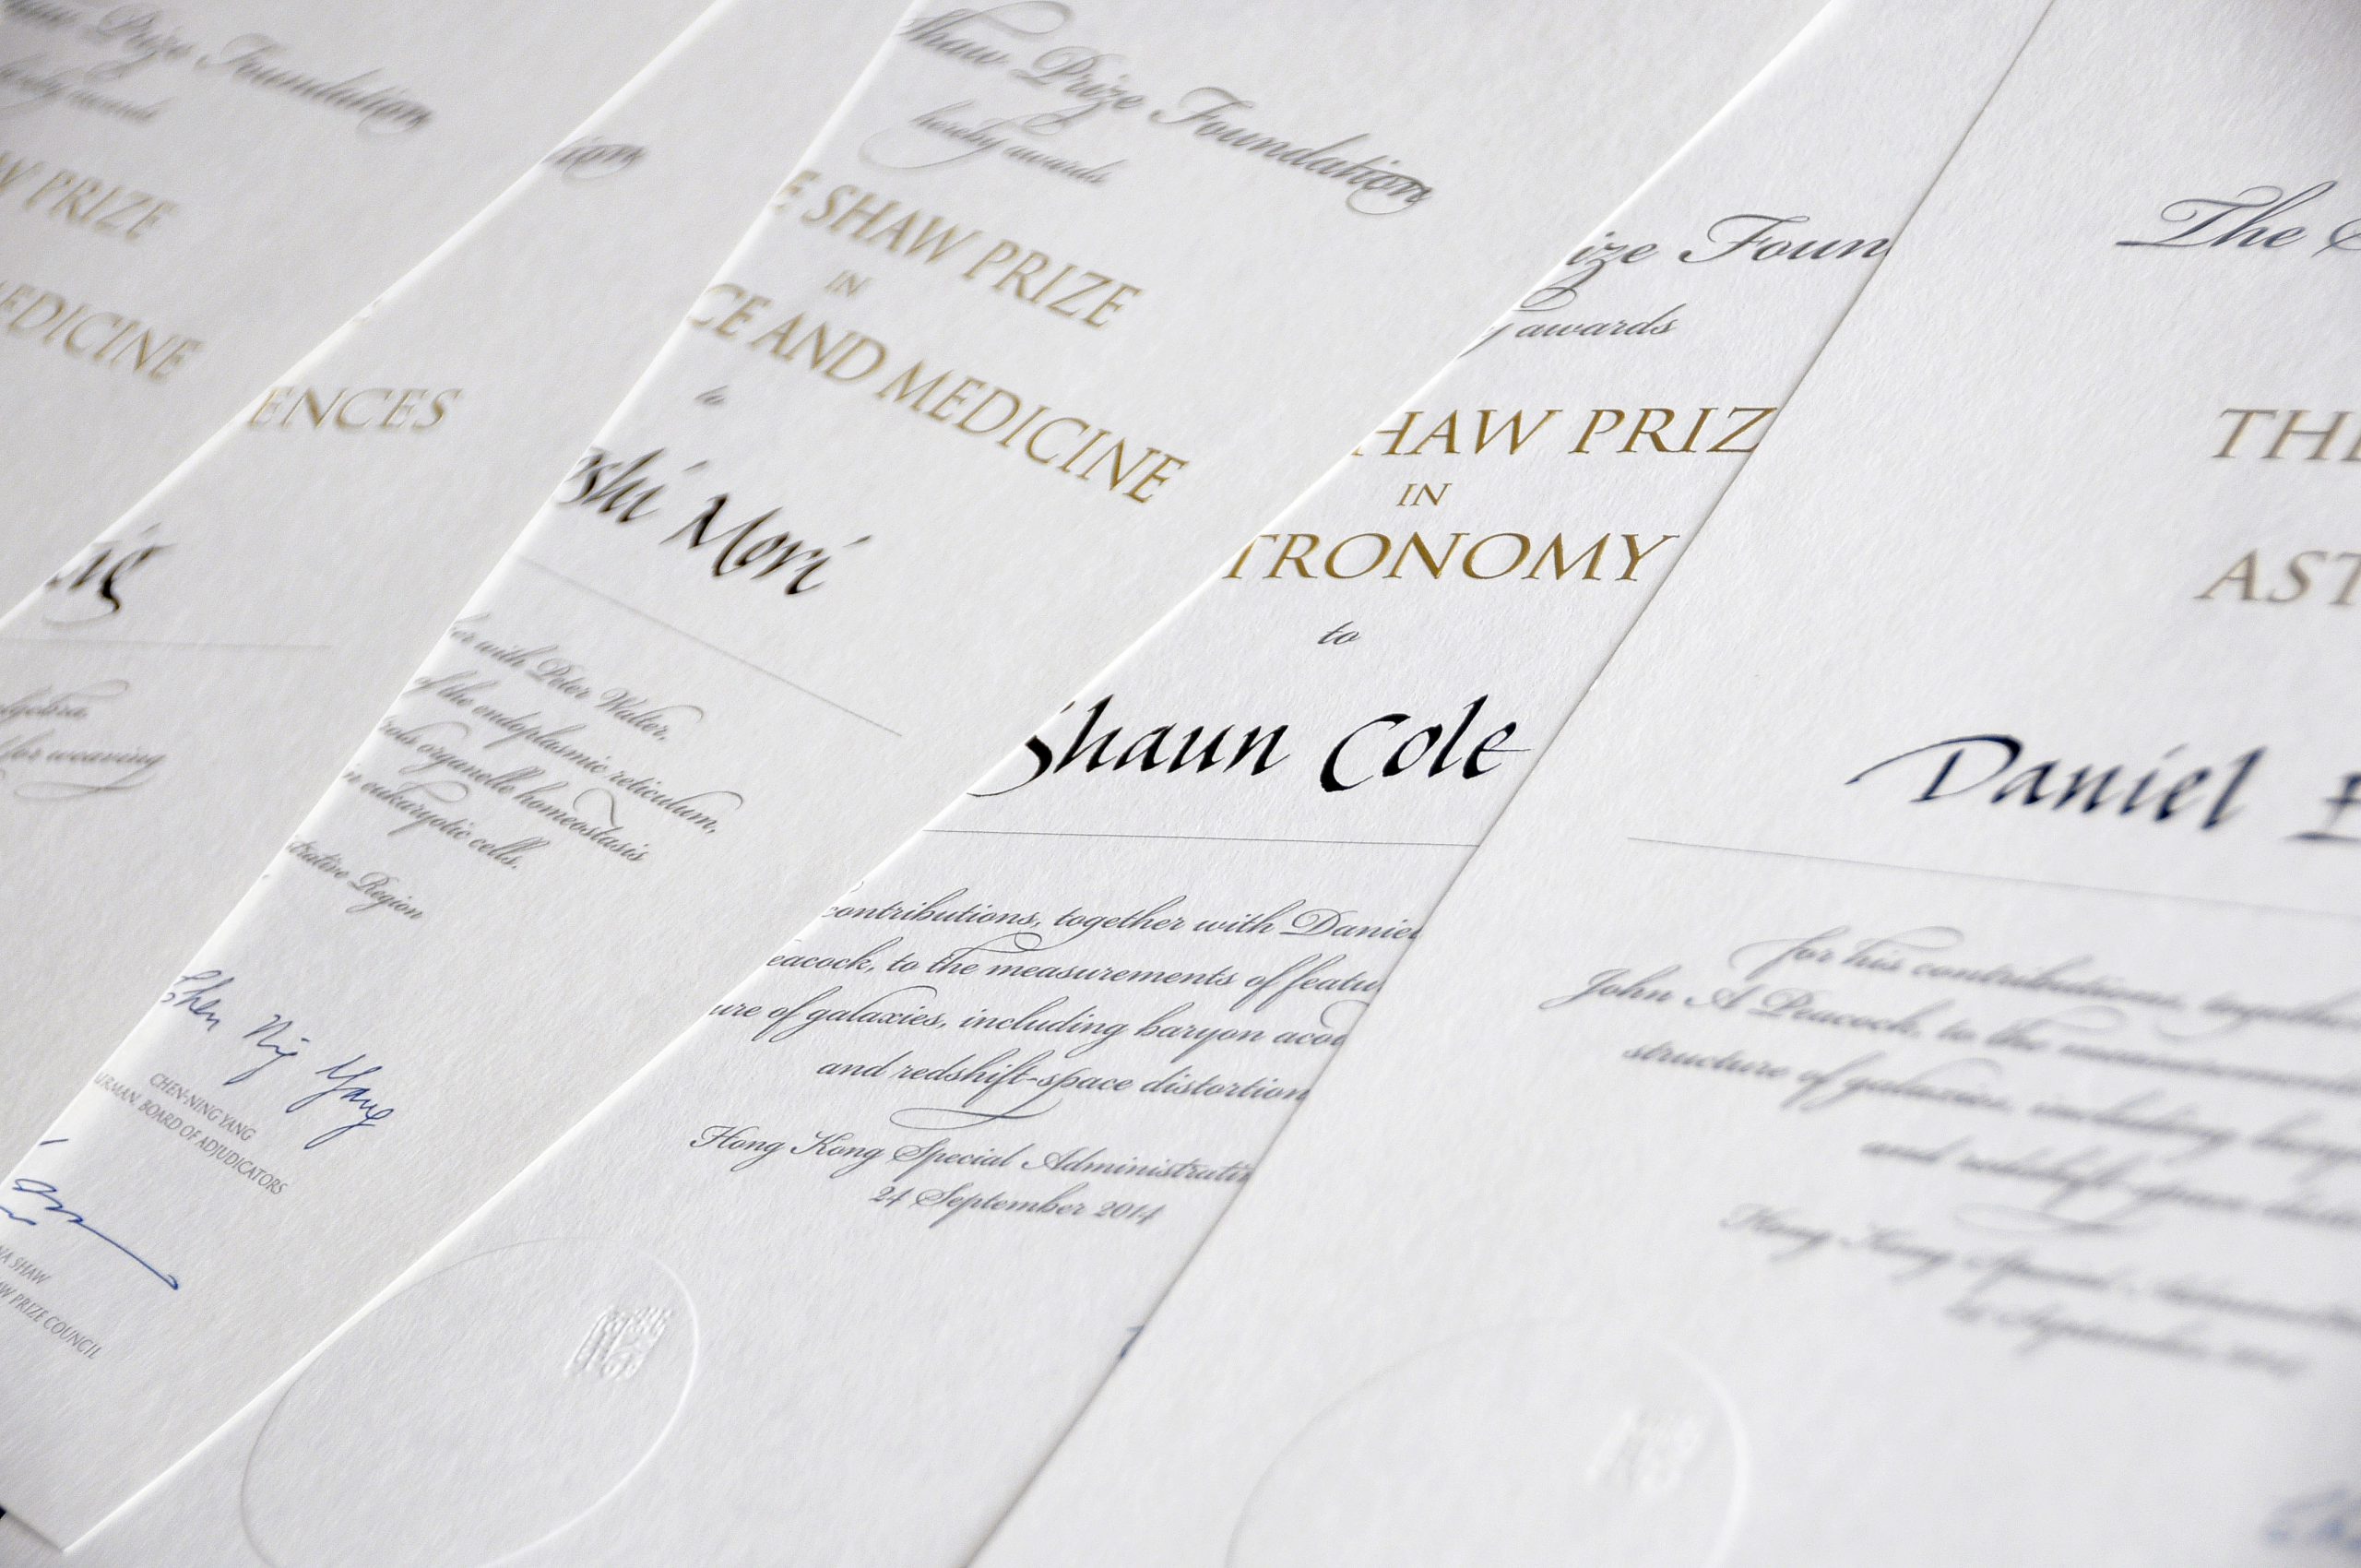 Prize Foundation
hereby awards
W PRIZE
EDICINE
ig
lgebra,
for weaving
ion
ENCES
Shaw Prize Foundation
hereby awards
E SHAW PRIZE
IN
CE AND MEDICINE
to
oshi Mori
er with Peter Walter,
of the endoplasmic reticulum,
rols organelle homeostasis
in eukaryotic cells.
trative Region
Chen Ning Yang
CHEN-NING YANG
URMAN, BOARD OF ADJUDICATORS
NA SHAW
W PRIZE COUNCIL
ize Foun
y awards
HAW PRIZ
IN
TRONOMY
to
Shaun Cole
contributions, together with Daniel
eacock, to the measurements of featu
ure of galaxies, including baryon acou
and redshift-space distortion
Hong Kong Special Administrativ
24 September 2014
The S
THE
AST
Daniel E
for his contributions, together
John A Peacock, to the measurements
structure of galaxies, including bary
and redshift-space disto
Hong Kong Special Administra
24 September 2014